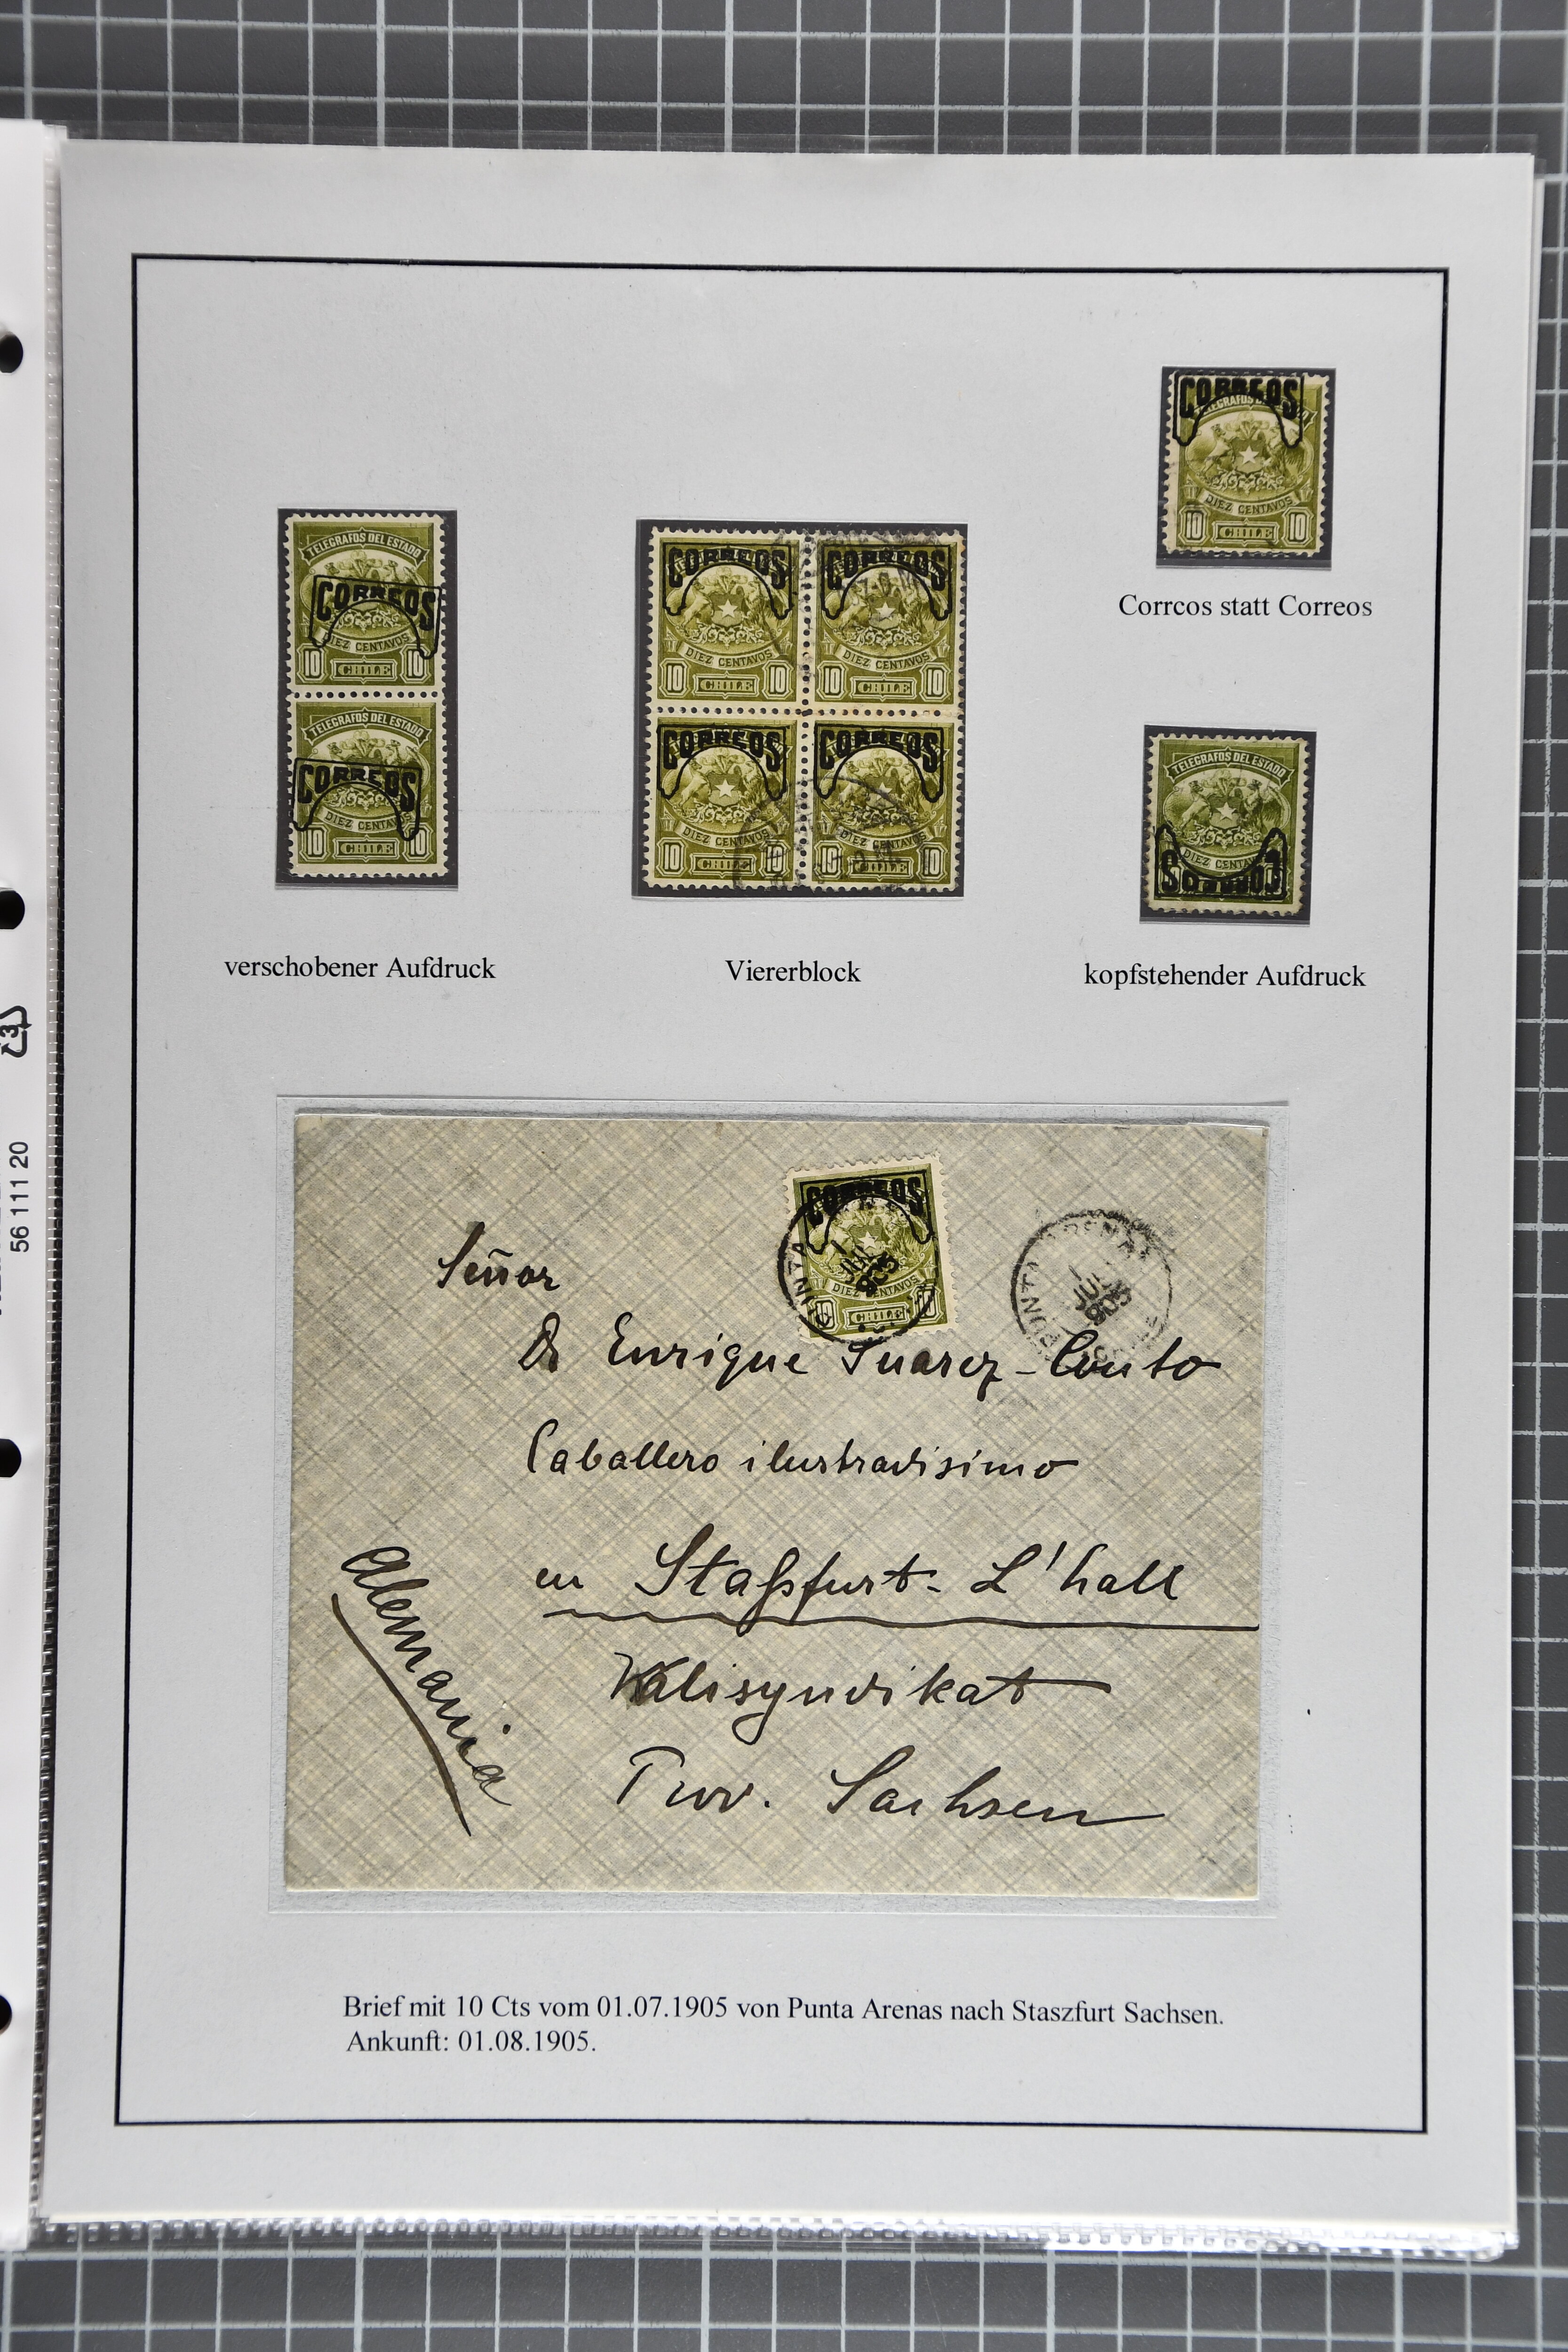 CORREOS
TELEGRAFOS DEL ESTADO
DIEZ CENTAVOS
10 CHILE 10
Corrcos statt Correos
TELEGRAFOS DEL ESTADO
CORREOS
DIEZ CENTAVOS
10 CHILE 10
TELEGRAFOS DEL ESTADO
CORREOS
DIEZ CENTAVOS
10 CHILE 10
CORREOS CORREOS
DIEZ CENTAVOS DIEZ CENTAVOS
10 CHILE 10 10 CHILE 10
CORREOS CORREOS
DIEZ CENTAVOS DIEZ CENTAVOS
10 CHILE 10 10 CHILE 10
TELEGRAFOS DEL ESTADO
DIEZ CENTAVOS
CORREOS
verschobener Aufdruck
Viererblock
kopfstehender Aufdruck
CORREOS
DIEZ CENTAVOS
10 CHILE 10
PUNTA
1
JUL
905
PUNTA ARENAS
1
JUL
905
Señor
Dn Enrique Suarez-Couto
Caballero ilustradisimo
en Staßfurt-L'hall
Kalisyndikat
Prov. Sachsen
Alemania
Brief mit 10 Cts vom 01.07.1905 von Punta Arenas nach Staszfurt Sachsen.
Ankunft: 01.08.1905.
3
56 111 20